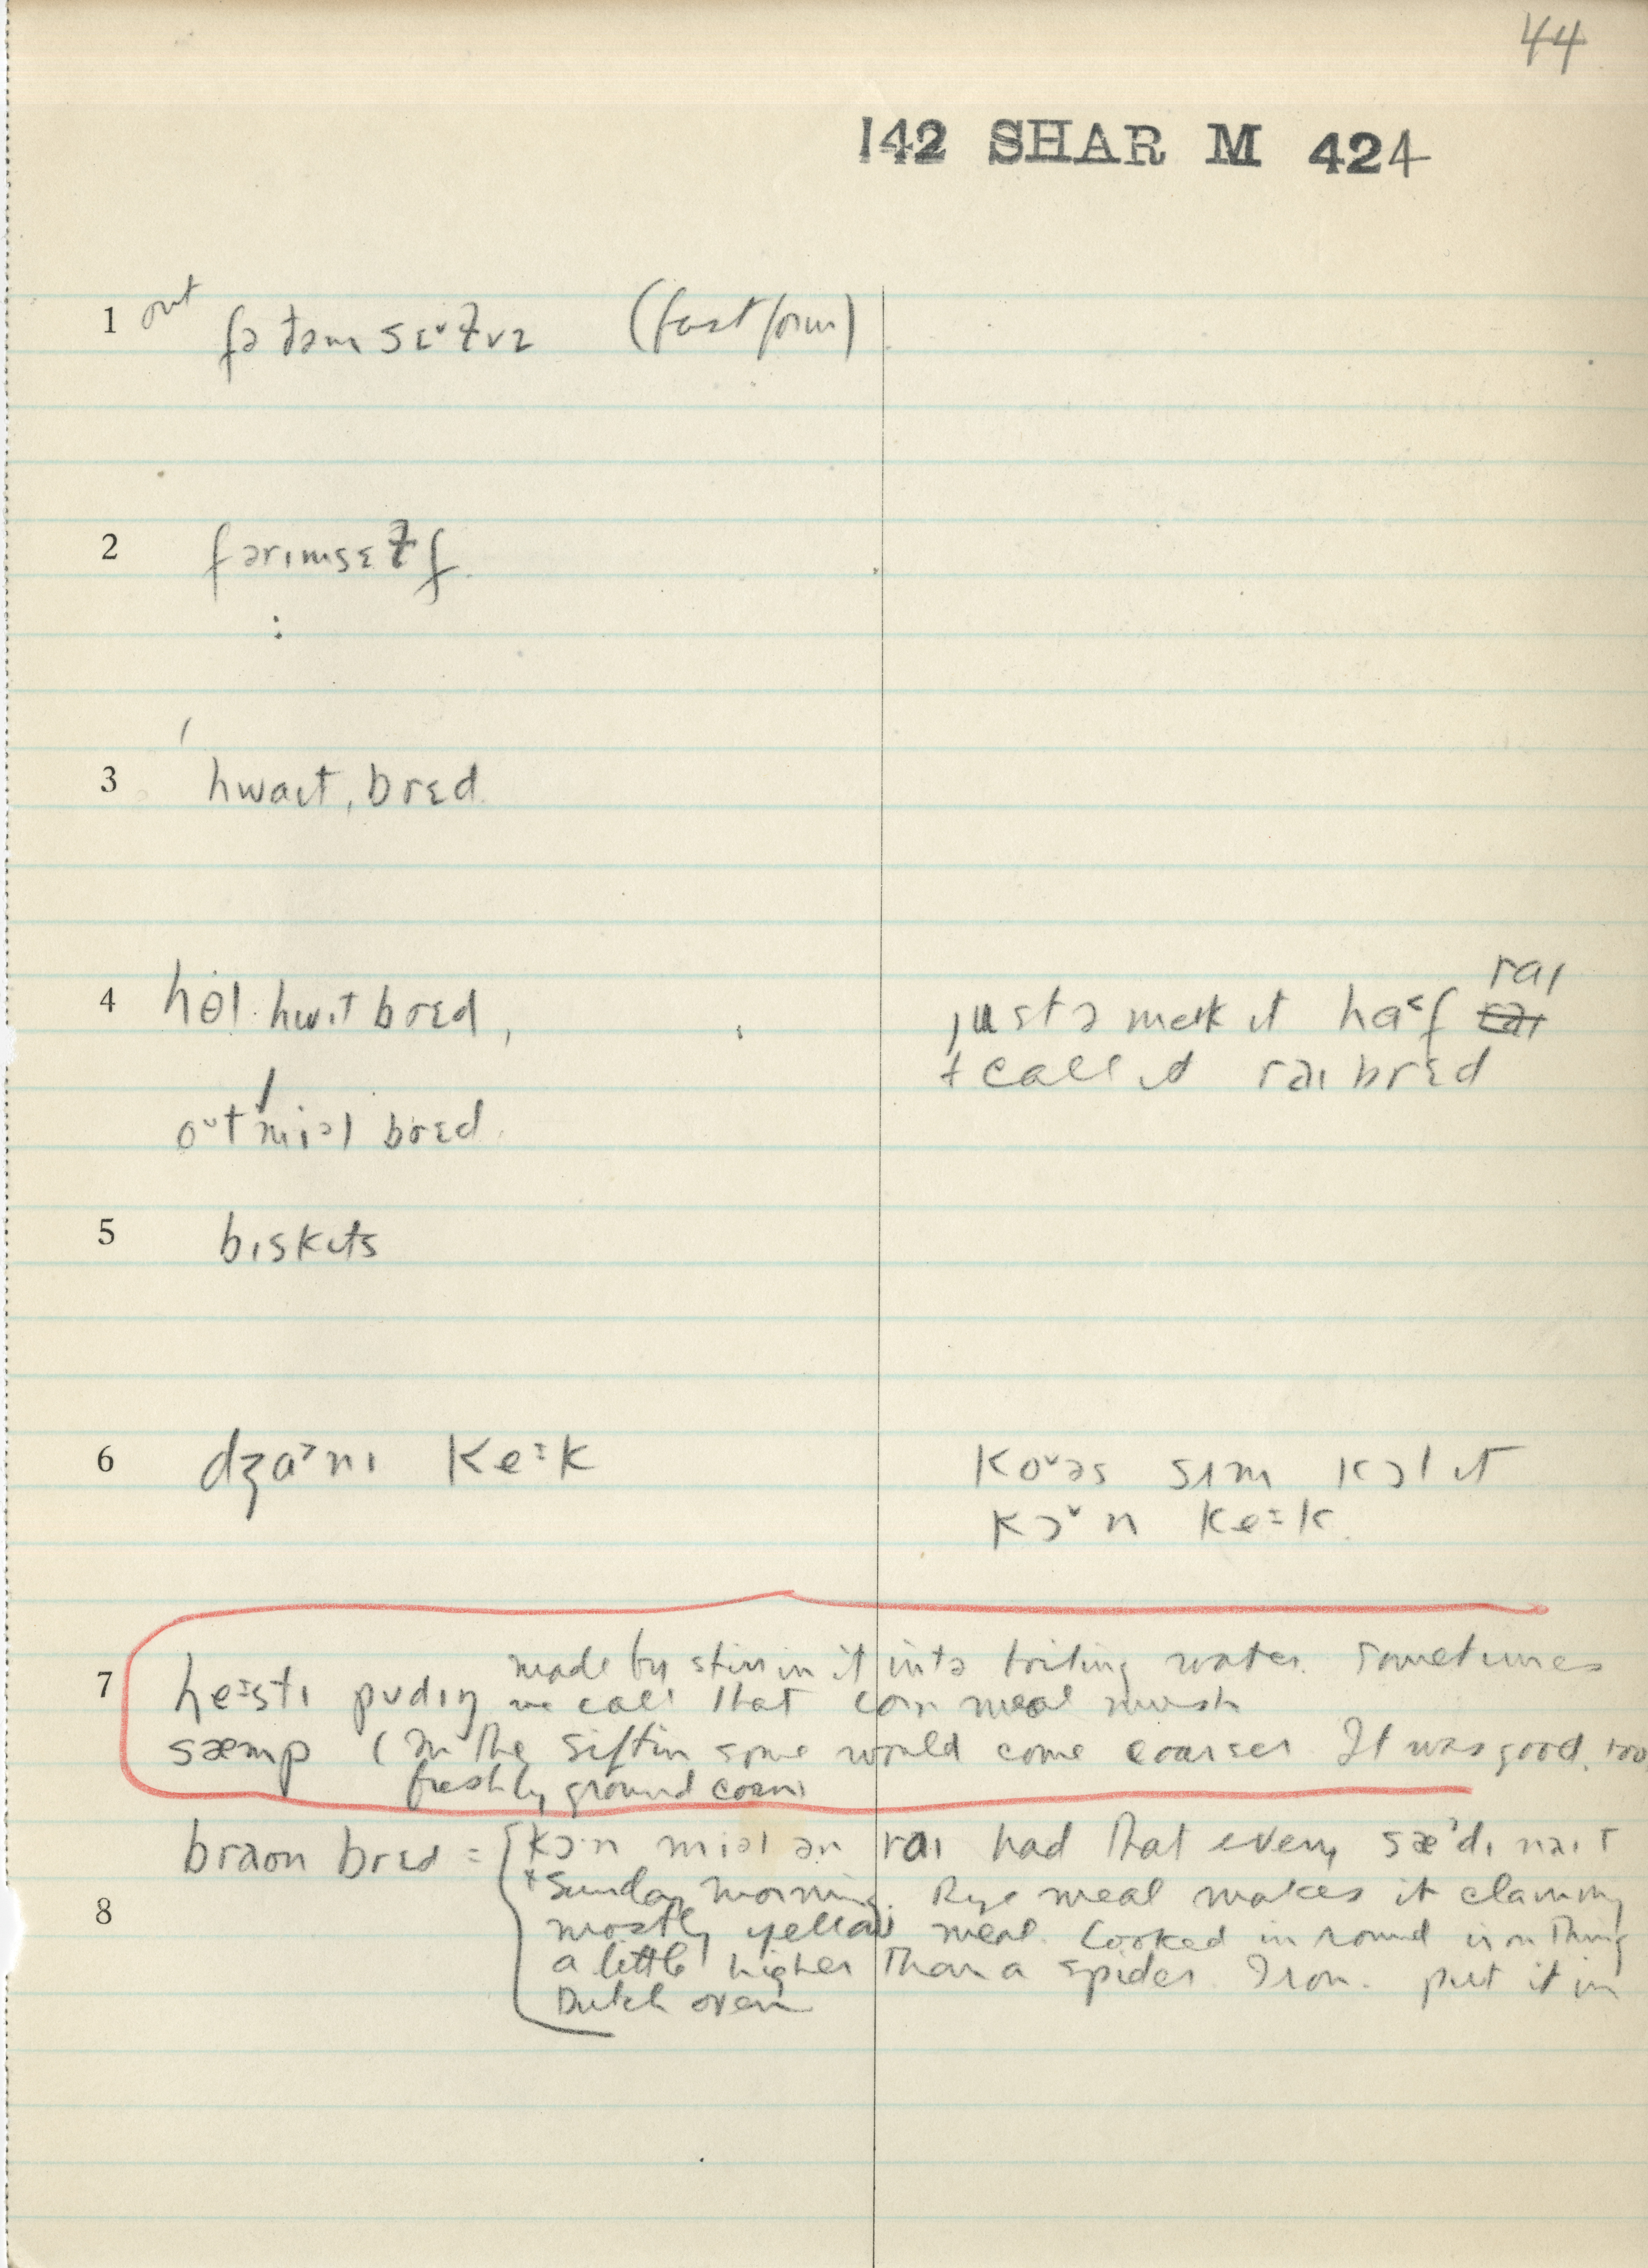 44
142 SHAR M 424
1 out fə ðəm sɛ˅ɫvz (fast form)
2 fərɪmsɛɫf
3 ˈhwaɪtˌbrɛd
4 hɵl hwit brɛd, rai
justə meɪk ɪt ha˂f
+ call ɪt rai brɛd
outmiəl brɛd
5 bɪskɪts
6 dʒa˃nɪ keːk koʊəs sɪm kɔl ɪt
kɔ˅n keːk
made by stirrin it intə boiling water. Sometimes
7 heːstɪ pʊdɪŋ we call that corn meal mush
sæmp (In the siftin some would come coarser It was good, too
freshly ground corn
braʊn brɛd = kɔ·n miəl ən rai had that every sæ˃dɪ nait
+ Sunday morning. Rye meal makes it clammy
8 mostly yellow meal. Cooked in round iron thing
a little higher than a spider. Iron. put it in
Dutch oven